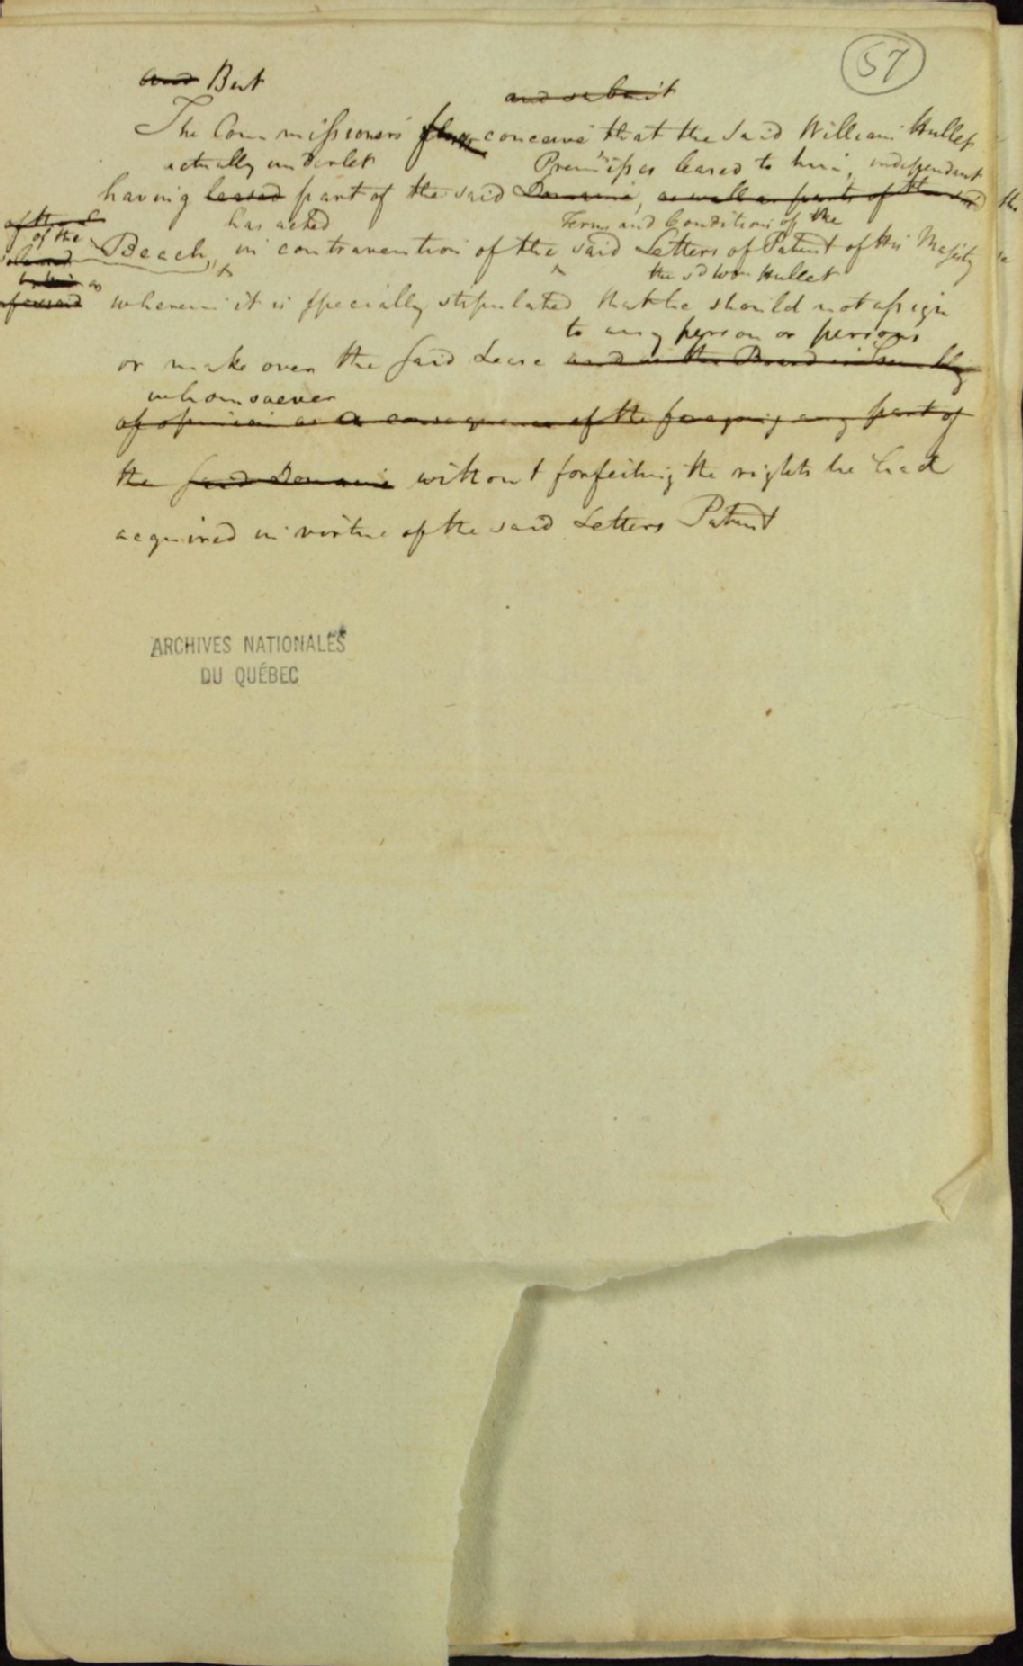 57
and But
and submit
The Commissioners conceive that the said William Hullet
actually underlet Premisses leased to him, independent
having leased part of the said Domaine, as well as parts of the
of the
has acted Terms and Conditions of the
Beach, in contravention of the said Letters of Patent of His Majesty
the sd Wm Hullet
wherein it is specially stipulated that he should not assign
to any person or persons
or make over the said Lease and the Board
whomsoever
of opinion as a consequence of the foregoing any part of
the said Domaine without forfeiting the rights he had
acquired in virtue of the said Letters Patent
ARCHIVES NATIONALES
DU QUÉBEC